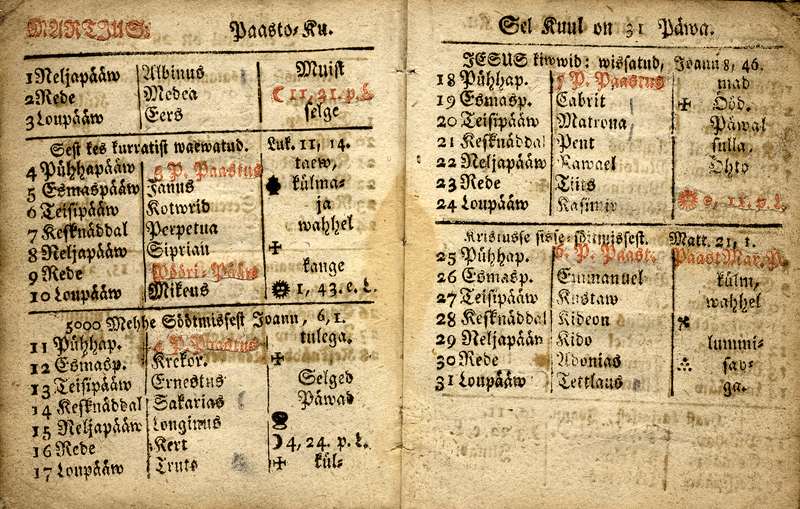 MARTJUS: Paasto-Ku.
1 Neljapääw Albinus Muist
2 Rede Medea 11, 21. p. L.
3 Loupääw Eers selge
Sest kes kurratist waewatud. Luk. 11, 14.
4 Pühhapääw 3 P. Paastus taew,
5 Esmaspääw Janus külma-
6 Teisipääw Kotwrid ja
7 Kesknäddal Perpetua wahhel
8 Neljapääw Siprian ✠
9 Rede Pööri-Pääw kange
10 Loupääw Mikeus 1, 43. e. L.
5000 Mehhe Söötmissest Joann, 6, 1.
11 Pühhap. 4 P. Paastus tulega.
12 Esmasp. Krekor. ✠
13 Teisipääw Ernestus Selged
14 Kesknäddal Sakarias Päwad
15 Neljapääw Longinus
16 Rede Kert ☽ 4, 24. p. L.
17 Loupääw Truts ✠ kül-
Sel Kuul on 31 Päwa.
JESUS kiwwid: wissatud, Joann 8, 46.
18 Pühhap. 5 P. Paastus mad
19 Esmasp. Cabrit ✠ Ööd.
20 Teisipääw Matrona Päwal
21 Kesknäddal Pent sulla,
22 Neljapääw Rawael Öhto
23 Rede Tiits
24 Loupääw Kasimir p. L.
Kristusse sisse-söitmissest. Matt. 21, 1.
25 Pühhap. 6. P. Paast. Paast Mar. P.
26 Esmasp. Emmanuel külm,
27 Teisipääw Kustaw wahhel
28 Kesknäddal Kideon
29 Neljapääw Kido lummi-
30 Rede Adonias say-
31 Loupääw Tettlaus ga.